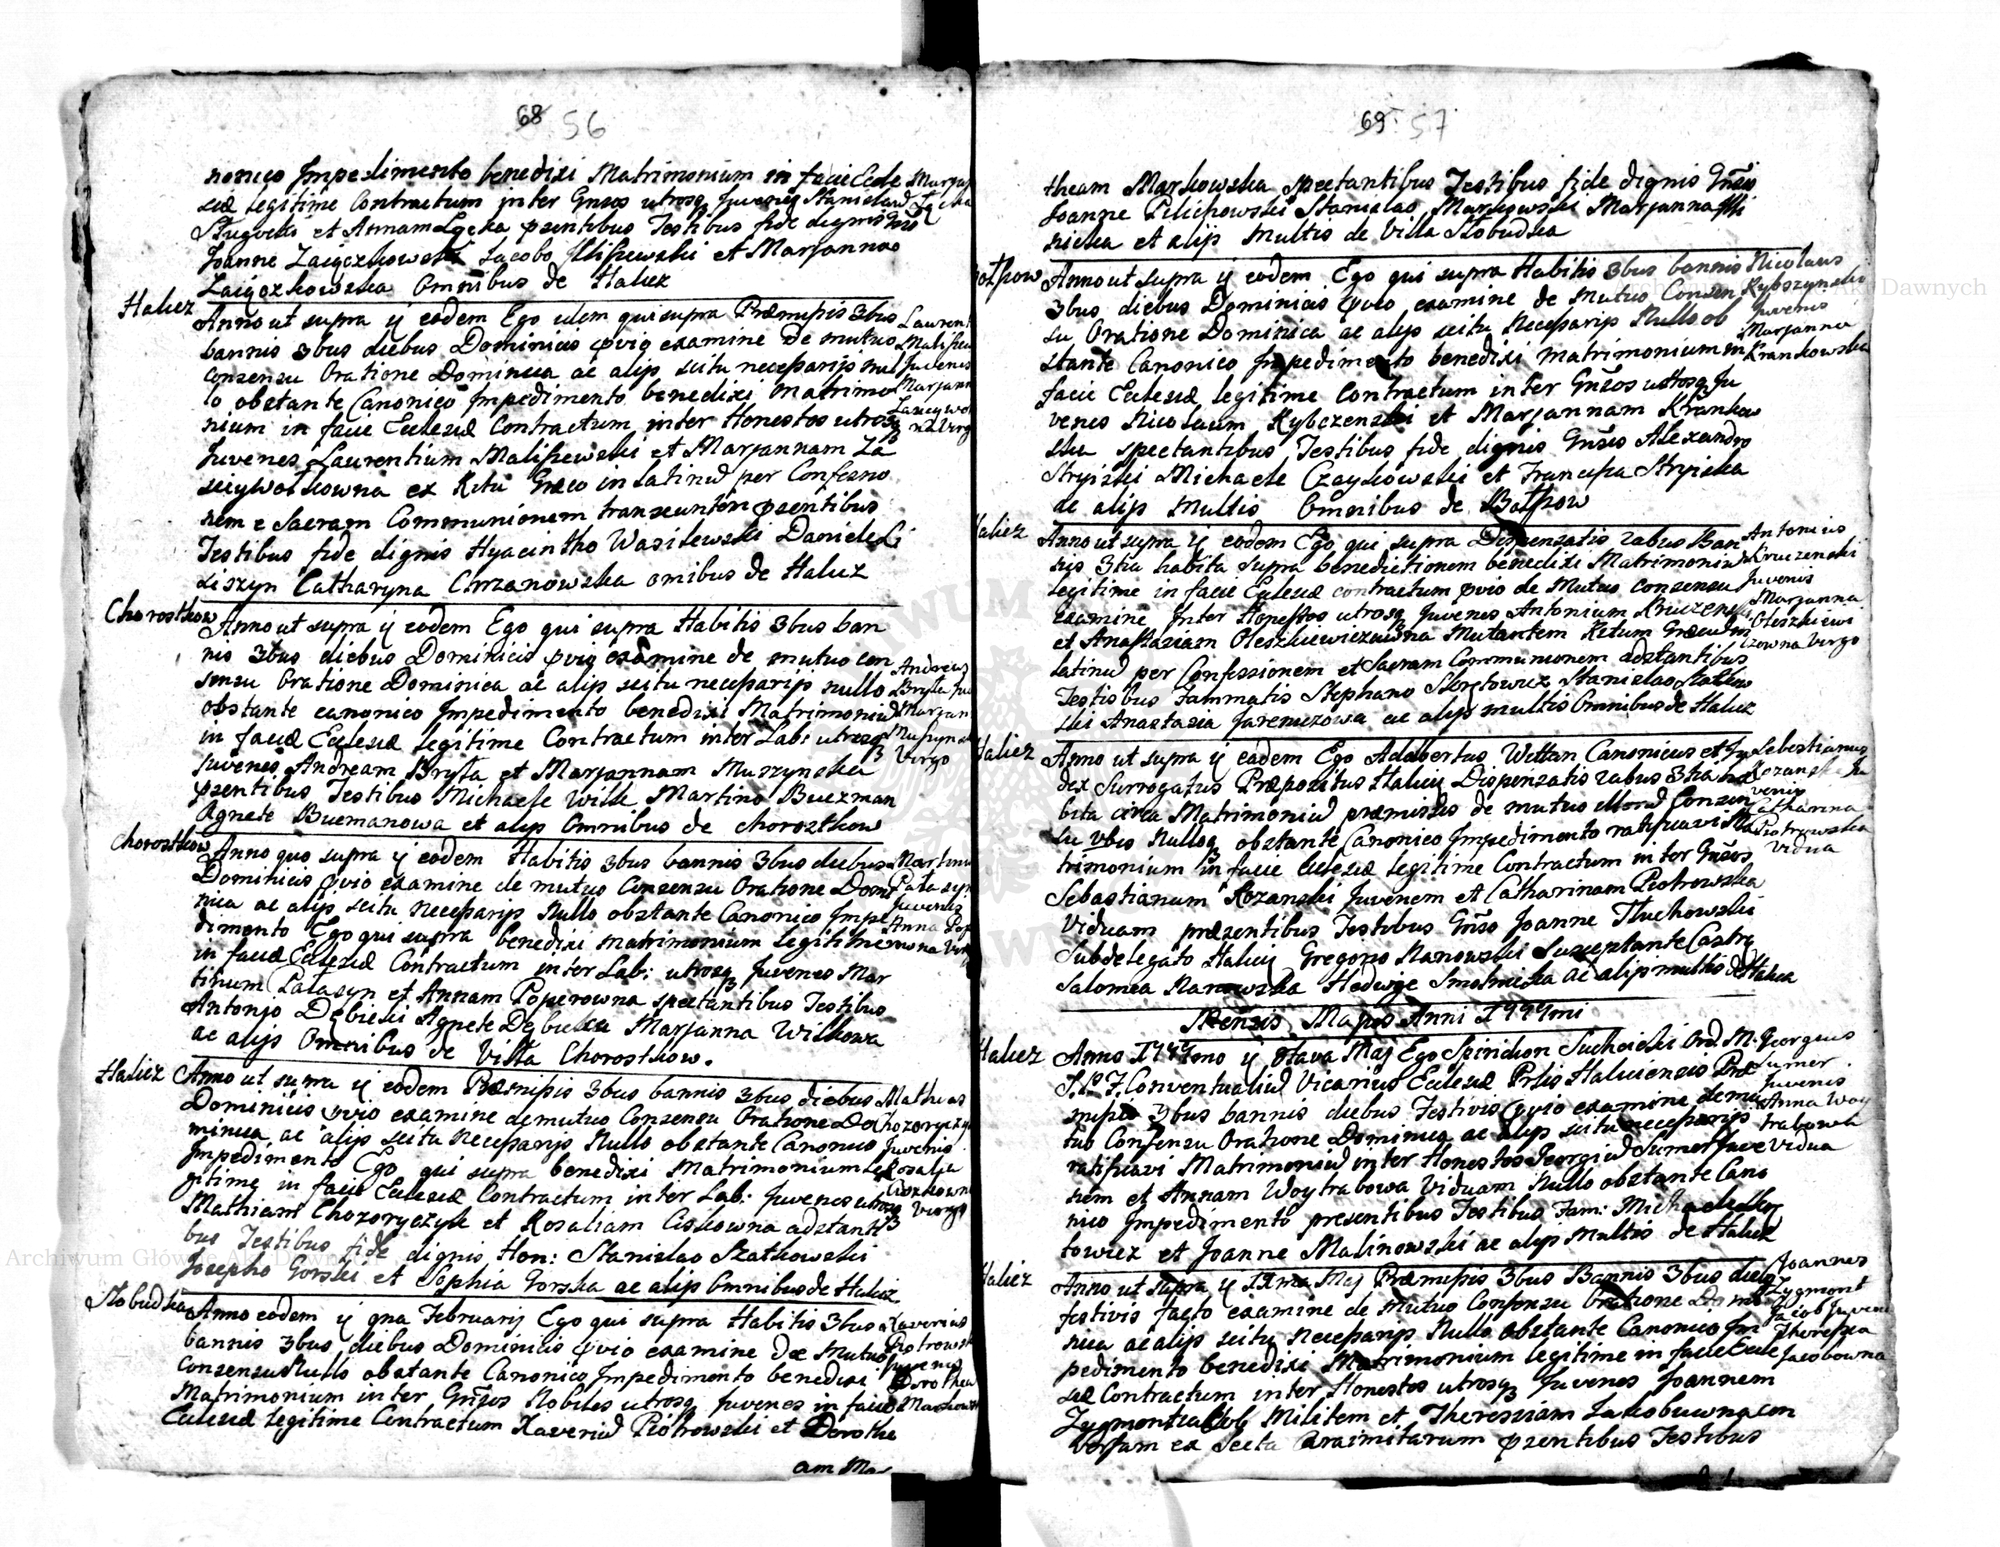 68 56
nonico Impedimento benedixi Matrimonium in facie Eccle
siæ legitime Contractum inter Gnsos utrosq Juvenes Stanislaum
et Annam Łącka psentibus Testibus fide dignis Gnso
Joanne Zaiączkowski Jacobo Iliszewski et Marjanna
Zaiączkowska Omnibus de Halicz
Halicz
Anno ut supra ij eodem Ego idem qui supra Præmissis 3bus
bannis 3bus diebus Dominicis pvio examine De mutuo
Consensu Oratione Dominica ac alijs scitu necessarijs nul
lo obstante Canonico Impedimento benedixi Matrimo
nium in facie Ecclesiæ Contractum inter Honestos utrosq
Juvenes Laurentium Maliszewski et Marjannam Ła
ex Ritu Græco in Latinũ per Confessio
nem e Sacram Communionem transeuntem psentibus
Testibus fide dignis Hyacintho Wasilewski Daniele Li
siszyn Catharyna Chrzanowska omibus de Halicz
Laurent
Juvenis
Marjann
na Virg
Chorostkow
Anno ut supra ij eodem Ego qui supra Habitis 3bus ban
nis 3bus diebus Dominicis pvio examine de mutuo con
sensu Oratione Dominica ac alijs scitu necessarijs nullo
obstante canonico Impedimento benedixi Matrimoniũ
in faciæ Ecclesiæ legitime Contractum inter Lab: utrosq
Juvenes Andream Bryła et Marjannam Muszynska
psentibus Testibus Michaele Wilk Martino Buczman
Agnete Buemanowa et alijs Omnibus de Chorostkow
Andreas
Bryła Ju
Marjan
Muszyns
Virgo
Chorostkow
Anno quo supra ij eodem Habitis 3bus bannis 3bus diebus
Dominicis pvio examine de mutuo Consensu Oratione Domi
nica ac alijs scitu necessarijs Nullo obstante Canonico Impe
dimento Ego qui supra benedixi matrimonium legitime
in faciæ Ecclesiæ Contractum inter Lab: utrosq Juvenes Mar
tinum Pałasyn et Annam Poperowna spectantibus Testibus
Antonio Dębicki Agnete Dębicka Marjanna Wilkowa
ac alijs Omnibus de Villa Chorostkow.
Martinu
Pałasyn
Juvenis
Anna Pop
rowna Virg
Halicz
Anno ut supra ij eodem Præmissis 3bus bannis 3bus diebus
Dominicis pvio examine de mutuo Consensu Oratione Do
minica ac alijs scitu Necessarijs Nullo obstante Canonico
Impedimento Ego qui supra benedixi Matrimonium Le
gitime in facie Ecclesiæ Contractum inter Lab: Juvenes utrosq
Mathiam Chozoryczyk et Rosaliam Ciskowna adstanti
bus Testibus fide dignis Hon: Stanislao Szatkowski
Josepho Gorski et Sophia Gorska ac alijs Omnibus de Halicz
Mathias
Chozoryczy
Juvenis
Rosalja
Virgo
Słobudka
Anno eodem ij 9na Februarij Ego qui supra Habitis 3bus
bannis 3bus diebus Dominicis pvio examine dæ Mutuo
Consensu Nullo obstante Canonico Impedimento benedixi
Matrimonium inter Gnsos Nobiles utrosq Juvenes in facie
Ecclesiæ legitime Contractum Xaveriũ Piotrowski et Dorothe
am Mar
Xaverius
Piotrowsk
Juvenis
Dorothea
Markows
69 57
theam Markowska spectantibus Testibus fide dignis Gnsis
Joanne Pilichowski Stanislao Markowski Marjanna Ili
nicka et alijs Multis de Villa Słobudka
Anno ut supra ij eodem Ego qui supra Habitis 3bus bannis
3bus diebus Dominicis pvio examine de mutuo Consen
su Oratione Dominica ac alijs scitu Necessarijs Nullo ob
stante Canonico Impedimento benedixi matrimonium in
facie Ecclesiæ legitime Contractum inter Gnsos utrosq Ju
venes Nicolaum Rybczenski et Marjannam Krankow
ska spectantibus Testibus fide dignis Gnsis Alexandro
Stryiski Michaele Czaykowski et Francisca Stryiska
ac alijs Multis Omnibus de Bołszow
Nicolaus
Rybszynski
Juvenis
Marjanna
Krankowska
Halicz
Anno ut supra ij eodem Ego qui supra Dispensatis 2abus Ban
nis 3tia habita supra benedictionem benedixi Matrimoniũ
legitime in facie Ecclesiæ contractum pvio de Mutuo consensu
examine Inter Honestos utrosq Juvenes Antonium Kruczenski
et Anastasiam Oleszkiewiczowna Mutantem Ritum Græcũ in
Latinũ per Confessionem et Sacram Communionem adstantibus
Testibus Fammatis Stephano Stanislao
ski Anastasia Jaremczowa ac alijs multis Omnibus de Halicz
Antonius
Kruczenski
Juvenis
Marjanna
Oleszkiewi
czowna Virgo
Halicz
Anno ut supra ij eodem Ego Adalbertus Wettan Canonicus et Ju
dex Surrogatus Præpozitus Halicij Dispensatis 2abus 3tia ha
bita circa Matrimoniũ præmissis de mutuo Consen
su Nulloq obstante Canonico Impedimento ratificavi Ma
trimonium in facie Ecclesiæ legitime Contractum inter Gnsos
Sebastianum Rozanski Juvenem et Catharinam Piotrowska
Viduam præsentibus Testibus Gnso Joanne Tluchowski
Subdelegato Halicij Gregorio Nanowski Susceptante Castrę
Salomea Narowska Hedwige Smolnicka ac alijs multis de Halicz
Sebestianus
Rozanski Ju
venis
Catharina
Piotrowska
Vidua
Mensis Majus Anni 1777mi
Halicz
Anno 1777mo ij Octava Maj Ego Spiridion Suchcicki Ord. M.
S. P. F. Conventualiũ Vicarius Ecclesiæ Prlis Haliciensis Præ
missis 3bus bannis diebus Festivis pvio examine de mu
tuo Consensu Oratione Dominica ac alijs scitu necessarijs
ratificavi Matrimoniũ inter Honestos Georgiũ Sumer Juve
nem et Annam Woytrabowa Viduam Nullo obstante Cano
nico Impedimento presentibus Testibus Fam: Michaele
towicz et Joanne Malinowski ac alijs Multis de Halicz
Georgeus
Sumer
Juvenis
Anna Woy
trabowa
Vidua
Halicz
Anno ut supra ij Maj Præmissis 3bus Bannis 3bus diebus
festivis facto examine de Mutuo Consensu Oratione Domi
nica ac alijs scitu Necessarijs Nullo obstante Canonico Im
pedimento benedixi Matrimonium legitime in facie Eccle
siæ Contractum inter Honestos utrosq Juvenes Joannem
Zygmont Militem et Theressiam Jakobuwna con
versam ex Secta Karaimitarum psentibus Testibus
Joannes
Zygmont
Jacob Juveni
Theressia
Jacobowna
Archiwum Główne Akt Dawnych